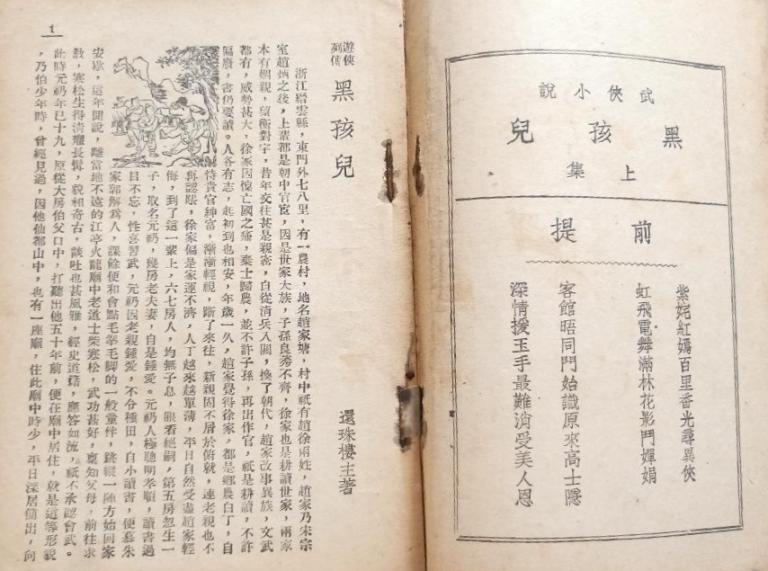 武俠小說
黑孩兒
上集
前提
紫姹紅嫣百里香光尋異俠
虹飛電舞滿林花影鬥嬋娟
客館晤同門始識原來高士隱
深情援玉手最難消受美人恩
遊俠列傳
黑孩兒
還珠樓主著
浙江縉雲縣,東門外七八里,有一農村,地名趙家塘,村中祇有趙徐兩姓,趙家乃宋宗
室趙炳之後,上輩都是朝中官宦,因是世家大族,子孫良莠不齊,徐家也是耕讀世家,兩家
本有姻親,望衡對宇,昔年交往甚是親密,自從清兵入關,換了朝代,趙家改事異族,文武
都有,威勢甚大,徐家因懷亡國之痛,棄士歸農,並不許子孫,再出作官,祇是耕讀,不許
隔廢,書仍要讀。人各有志,起初到也相安,年歲一久,趙家覺得徐家,都是鄉農白丁,自
恃貴官紳富,漸漸輕視,斷了來往,新親固不屑於俯就,連老親也不
再認賬,徐家偏是家運不濟,人丁越來越單薄,平日自然受盡趙家輕
侮,到了這一輩上,六七房人,均無子息,眼看絕嗣,第五房忽生一
子,取名元礽,幾房老夫妻,自是鍾愛。元礽人極聰明孝順,讀書過
目不忘,性喜習武,元礽因老親鍾愛,不令種田,自小讀書,便慕朱
家郭解為人,課餘便和會點毛拳毛脚的一般童伴,跳縱一陣方始回家
安歇,這年聞說,離當地不遠的江亭火龍廟中老道士柴寒松,武功甚好,稟知父母,前往求
教,寒松生得清癯長鬚,貌相奇古,談吐也甚風雅,經史道籍,應答如流,祇不承認會武。
此時元礽年已十九,原從大房伯父口中,打聽出他五十年前,便在廟中居住,就是這等形貌
,乃伯少年時,曾經見過,因他仙都山中,也有一座廟,住此廟中時少,平日深居簡出,向
1